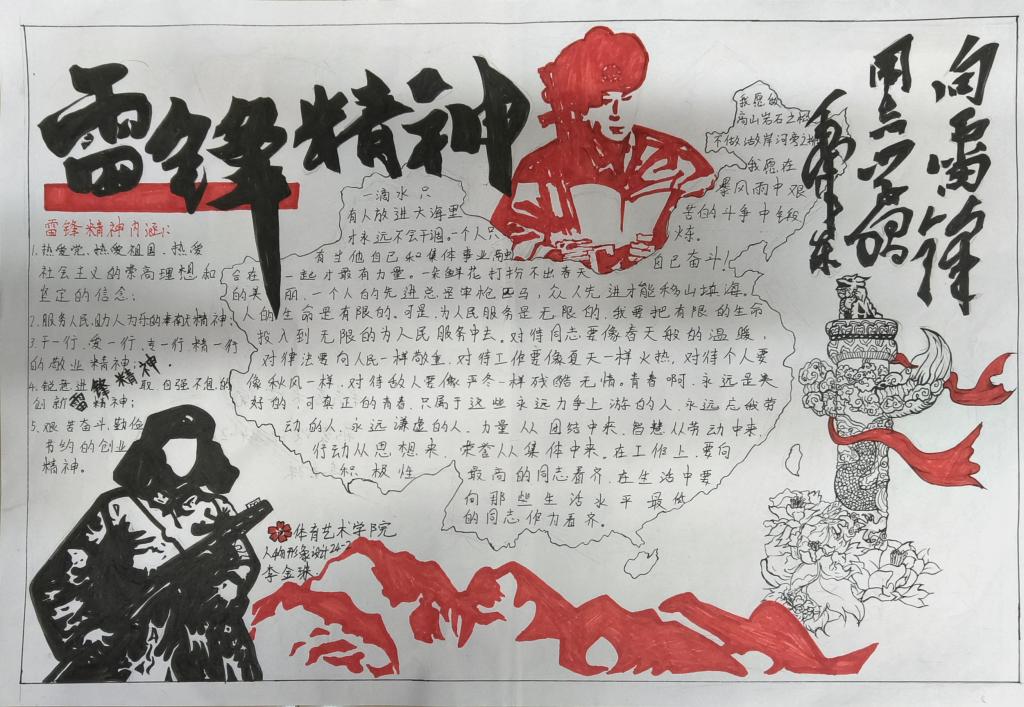 雷锋精神
向雷锋
同志学习
毛泽东
雷锋精神内涵:
1.热爱党、热爱祖国、热爱
社会主义的崇高理想和
坚定的信念;
2.服务人民、助人为乐的奉献精神;
3.干一行、爱一行、专一行、精一行
的敬业精神。
4.锐意进取、自强不息的
创新精神;
5、艰苦奋斗、勤俭
节约的创业
精神。
雷锋精神
一滴水只
有人放进大海里
才永远不会干涸。一个人只
有当他自己和集体事业融
合在一起才最有力量。一朵鲜花打扮不出春天
的美丽、一个人的先进总是单枪匹马,众人先进才能移山填海。
人的生命是有限的。可是,为人民服务是无限的,我要把有限的生命
投入到无限的为人民服务中去。对待同志要像春天般的温暖,
对律法要向人民一样敬重,对待工作要像夏天一样火热,对待个人要
像秋风一样,对待敌人要像严冬一样残酷无情。青春啊,永远是美
好的,可真正的青春,只属于这些永远力争上游的人、永远忘我劳
动的人、永远谦虚的人、力量从团结中来、智慧从劳动中来、
行动从思想来、荣誉从集体中来。在工作上,要向
积极性最高的同志看齐,在生活中要
向那些生活水平最低
的同志作为看齐。
我愿做
高山岩石之松
不做湖岸河旁之柳
我愿在
暴风雨中艰
苦的斗争中锻
炼
自己奋斗!
体育艺术学院
人物形象设计24-2
李金珠